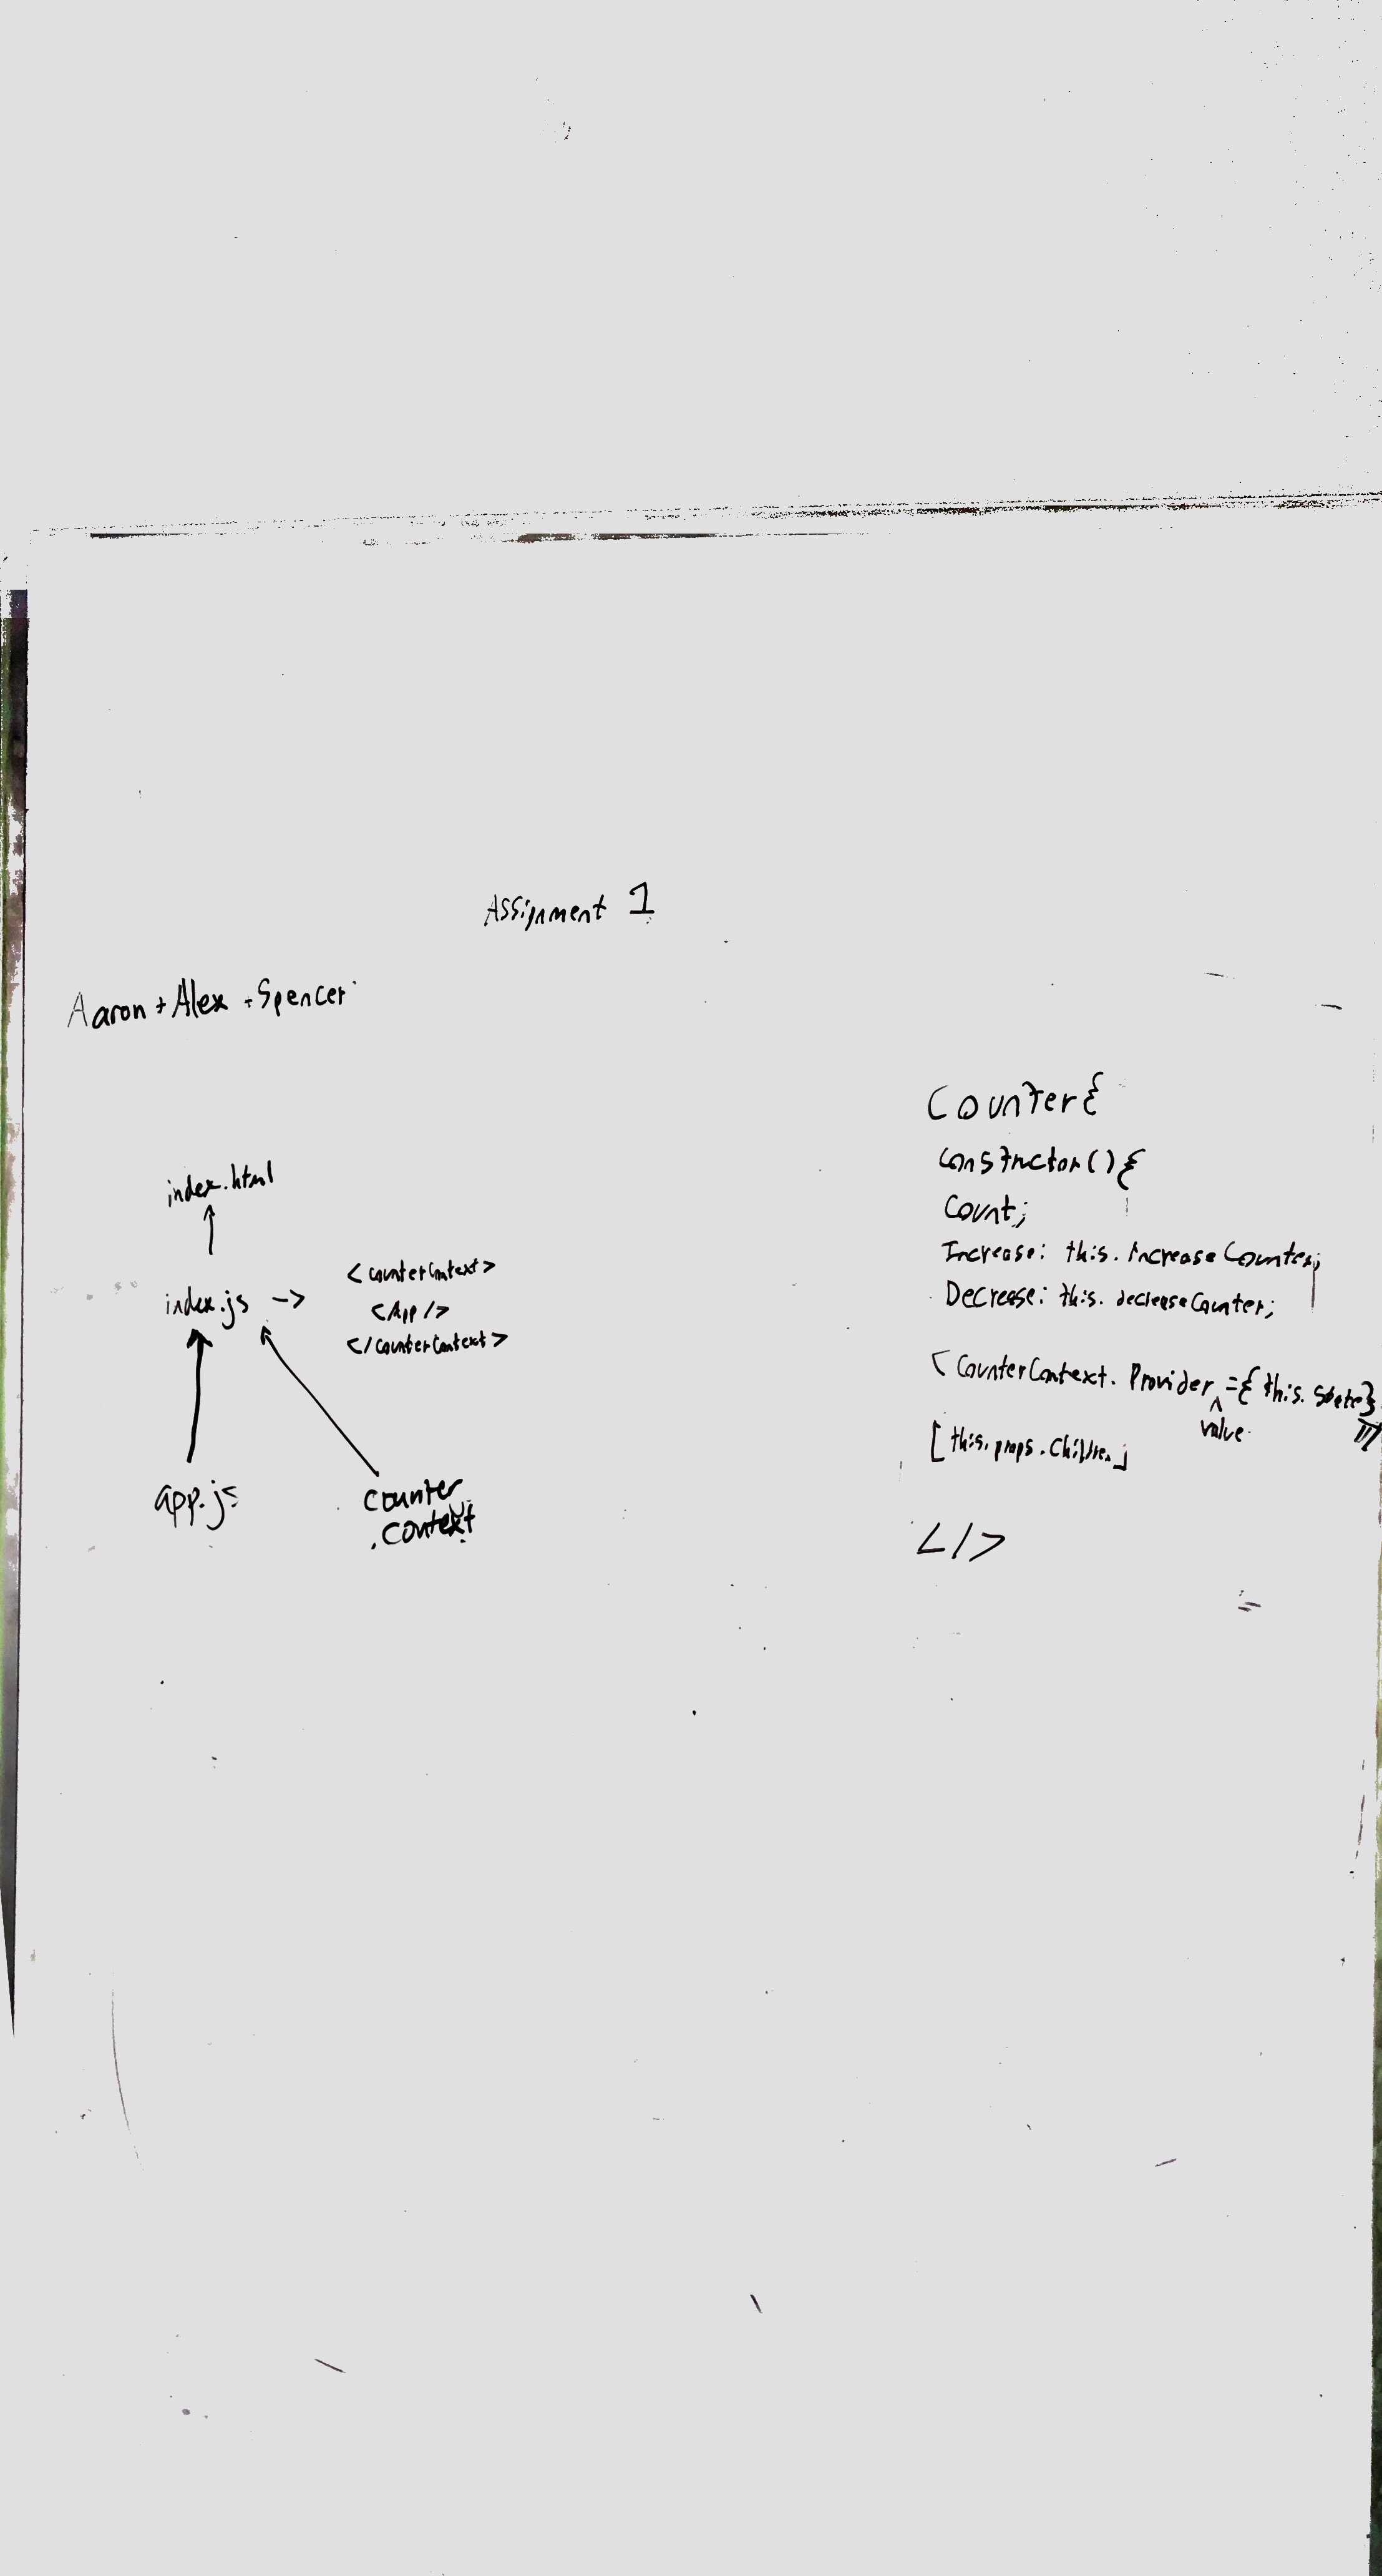 Assignment 1
Aaron + Alex + Spencer
index.html
index.js -> <counterContext>
<App/>
</counterContext>
app.js
counter
.context
Counter{
constructor(){
Count;
Increase: this.increaseCounter;
Decrease: this.decreaseCounter;
<CounterContext.Provider ={this.state}
^
value
[this.props.Children]
</>